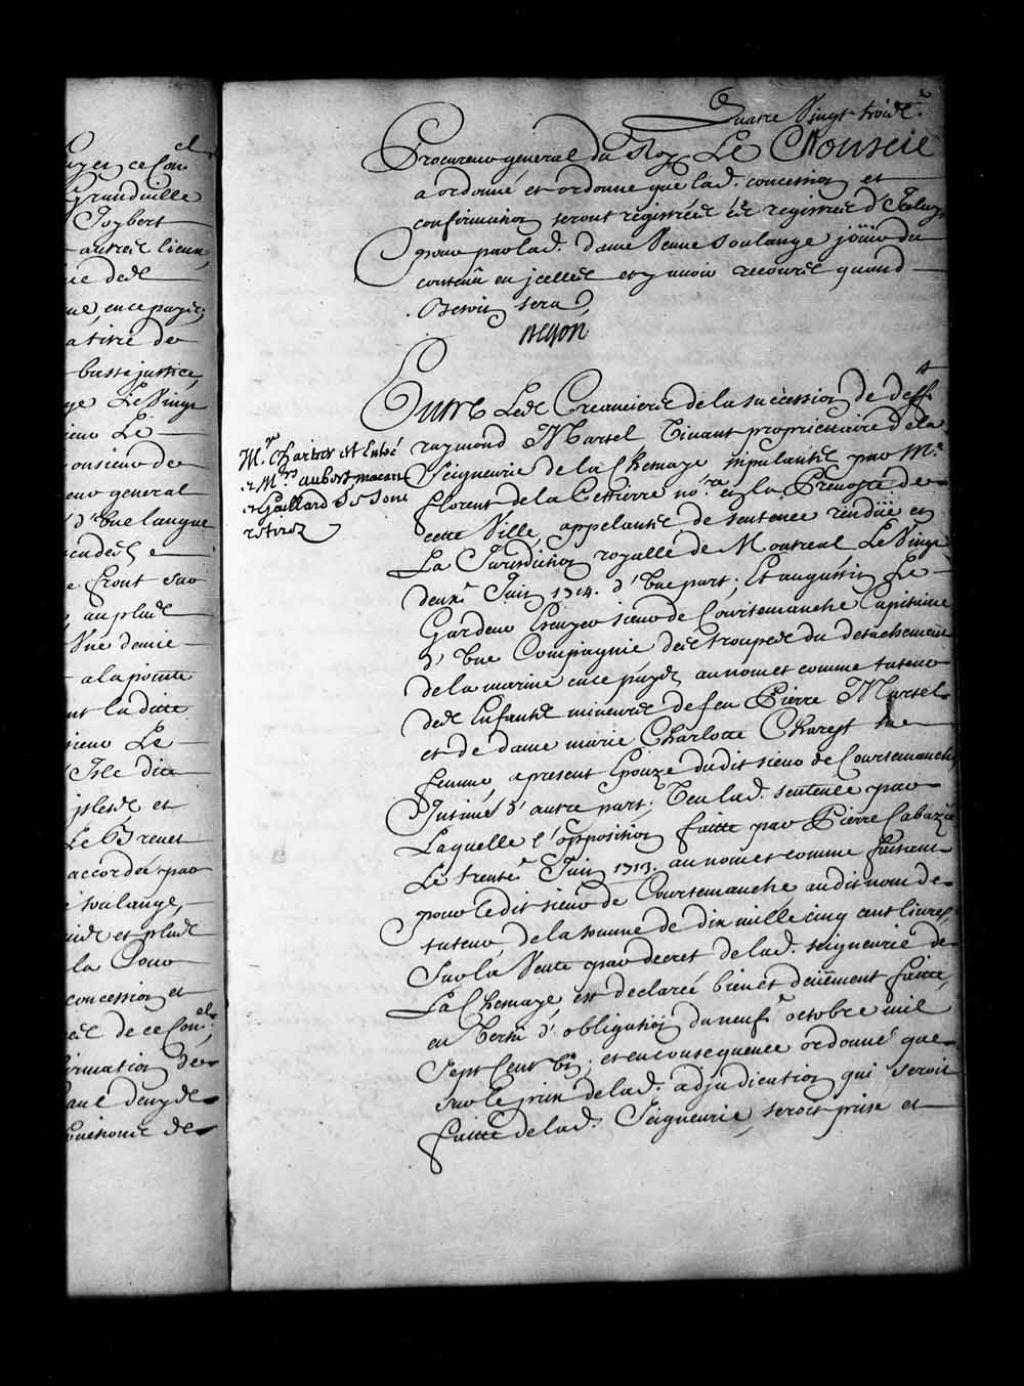 el
ce Con
Grandville
Joybert
autres lieux,
ue des
en ce pays,
a titre de
basse justice,
Le Vingt
ieur Le
onsieur de
eur general
d'Une langue
endes
e front sur
au plus
Une demie
a la pointe
nt la ditte
ieur Le
Isle dite
isles, et
Le Brevet
accordée par
soulange,
et plus
la Cour
concession et
de ce Con.el
irmation de
de
Quatre Vingt troise.
Procureur general du Roy, Le Conseil
a ordonné et ordonne que lad. concession et
confirmation seront registrées és registres d'Iceluy
pour par lad. dame Veuve Soulange joüir du
contenu en jcelles et y avoir recours quand
Besoin sera,
Begon
Entre Les Creanciers de la succession de deff.t
raymond Martel Vivant proprietaire de la
Seigneurie de la Chenaye, stipulants par M.e
florent de la Cettierre no.re en la Prevosté de
cette Ville, appelants de sentence rendüe en
La Jurisdiction royalle de Montreal Le Vingt
deux.e Juin 1714. d'Une part; Et augustin Le
Gardeur Escuyer sieur de Courtemanche Capitaine
d'Une Compagnie des troupes du detachement
de la marine en ce pays, au nom et comme tuteur
des Enfants mineurs de feu Pierre Martel
et de dame marie Charlotte Charest sa
femme, apresent Epouze dudit sieur de Courtemanche
Intimé d'autre part; Veu lad. sentence par
Laquelle l'opposition faitte par Pierre Cabazié
Le trente.e Juin 1713. au nom et comme faisant
pour ledit sieur de Courtemanche audit nom de
tuteur de la somme de dix mille cinq cent livres,
Sur la Vente par decret de lad. seigneurie de
La Chenaye, est declarée bien et deüement faitte,
en Vertu d'obligation du neuf.e octobre mil
Sept Cent six; et en consequence ordonné que
sur le prix de lad. adjudication qui seroit
faitte de lad. Seigneurie, seroit pris et
M.r Chartier et Lusé
et M.rs aubert, macart
et Gaillard Se Sont
retirez